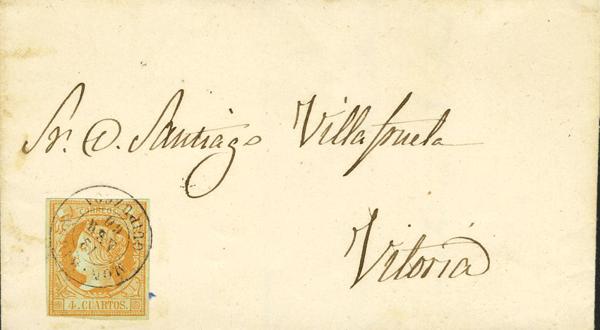 Sr. D. Santiago Villafruela
Vitoria
CORREOS
4 CUARTOS.
GUIPUZCOA